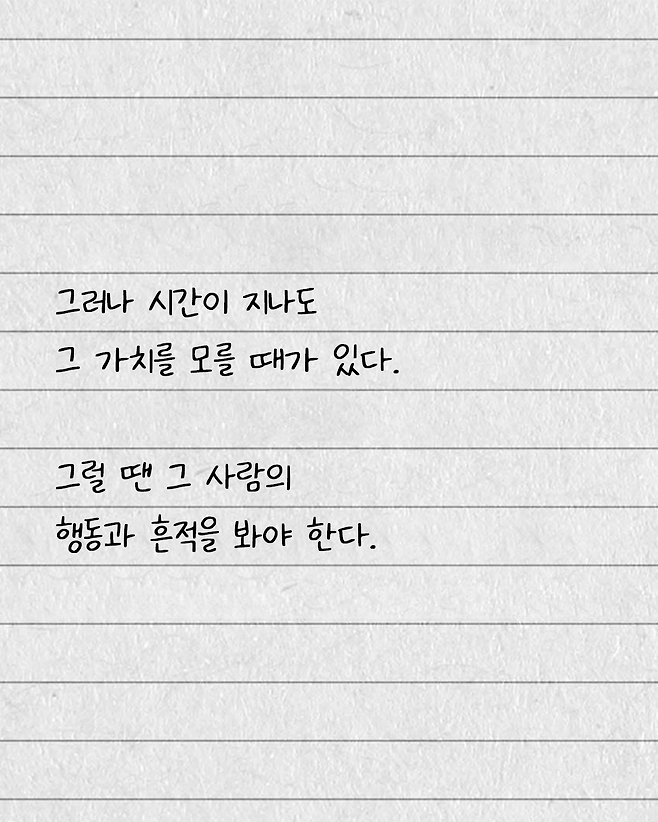 그러나 시간이 지나도
그 가치를 모를 때가 있다.
그럴 땐 그 사람의
행동과 흔적을 봐야 한다.